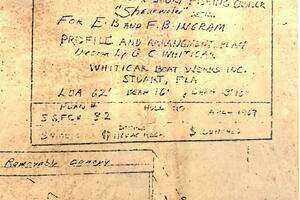 FISHING CRUISER
"Shearwater"
FOR E.B AND F.B INGRAM
PROFILE AND ARRANGEMENT PLAN
Design by G C WHITICAR
WHITICAR BOAT WORKS INC.
STUART, FLA
LOA 62' BEAM 16'
PLAN # HULL NO APRIL 1967
S.S.FC# 3.2
REMOVABLE CANOPY